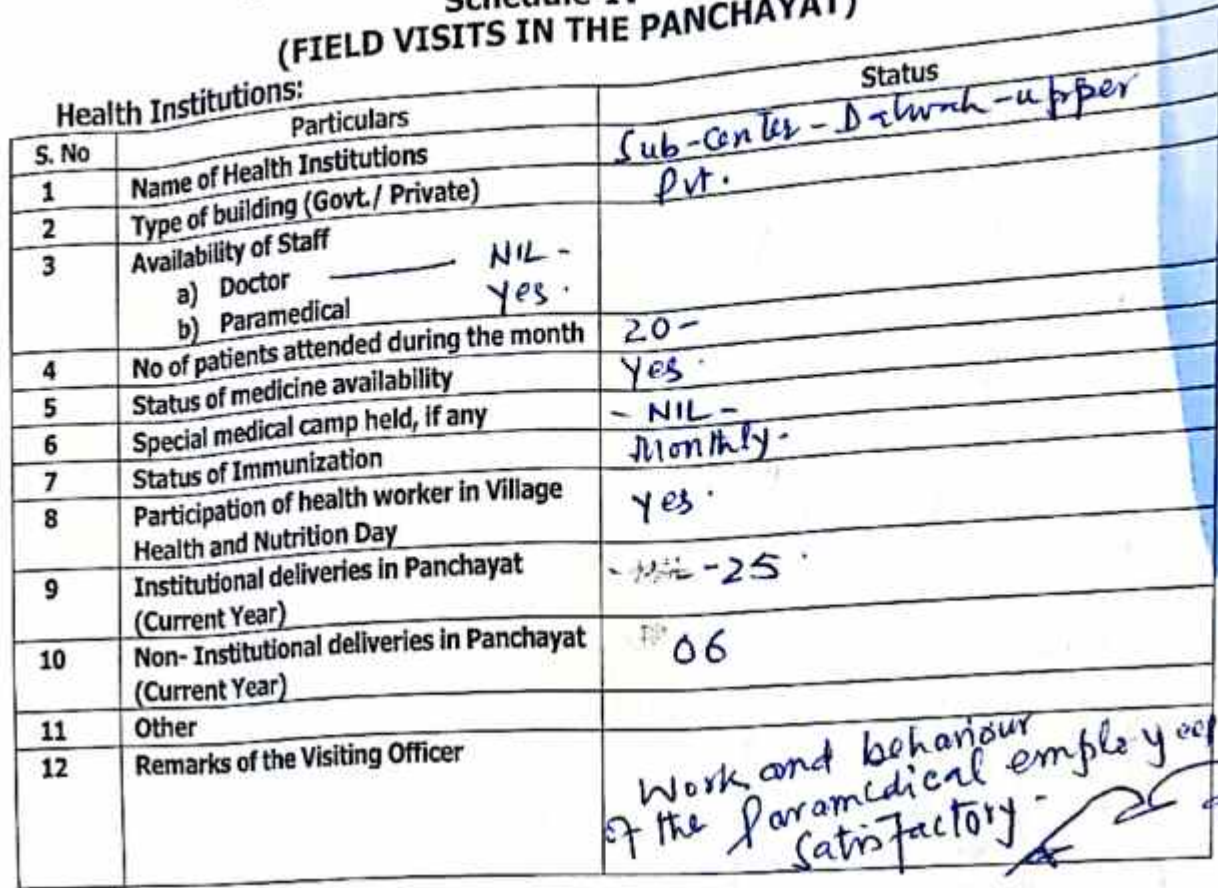 Schedule
(FIELD VISITS IN THE PANCHAYAT)
Health Institutions:
S. No Particulars Status
1 Name of Health Institutions Sub-Center - -upper
2 Type of building (Govt./ Private) Pvt.
3 Availability of Staff
a) Doctor NIL -
b) Paramedical Yes.
4 No of patients attended during the month 20-
5 Status of medicine availability Yes.
6 Special medical camp held, if any - NIL -
7 Status of Immunization Monthly-
8 Participation of health worker in Village yes.
Health and Nutrition Day
9 Institutional deliveries in Panchayat -25.
(Current Year)
10 Non- Institutional deliveries in Panchayat 06
(Current Year)
11 Other
12 Remarks of the Visiting Officer
Work and behaviour
of the Paramedical employees
Satisfactory-